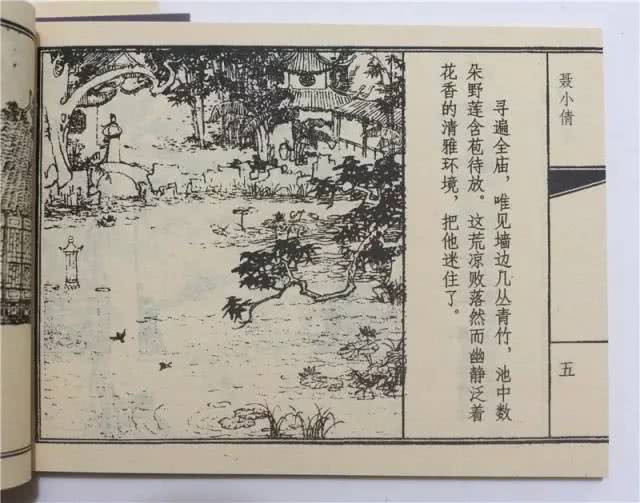 聂小倩
寻遍全庙，唯见墙边几丛青竹，池中数
朵野莲含苞待放。这荒凉败落然而幽静泛着
花香的清雅环境，把他迷住了。
五